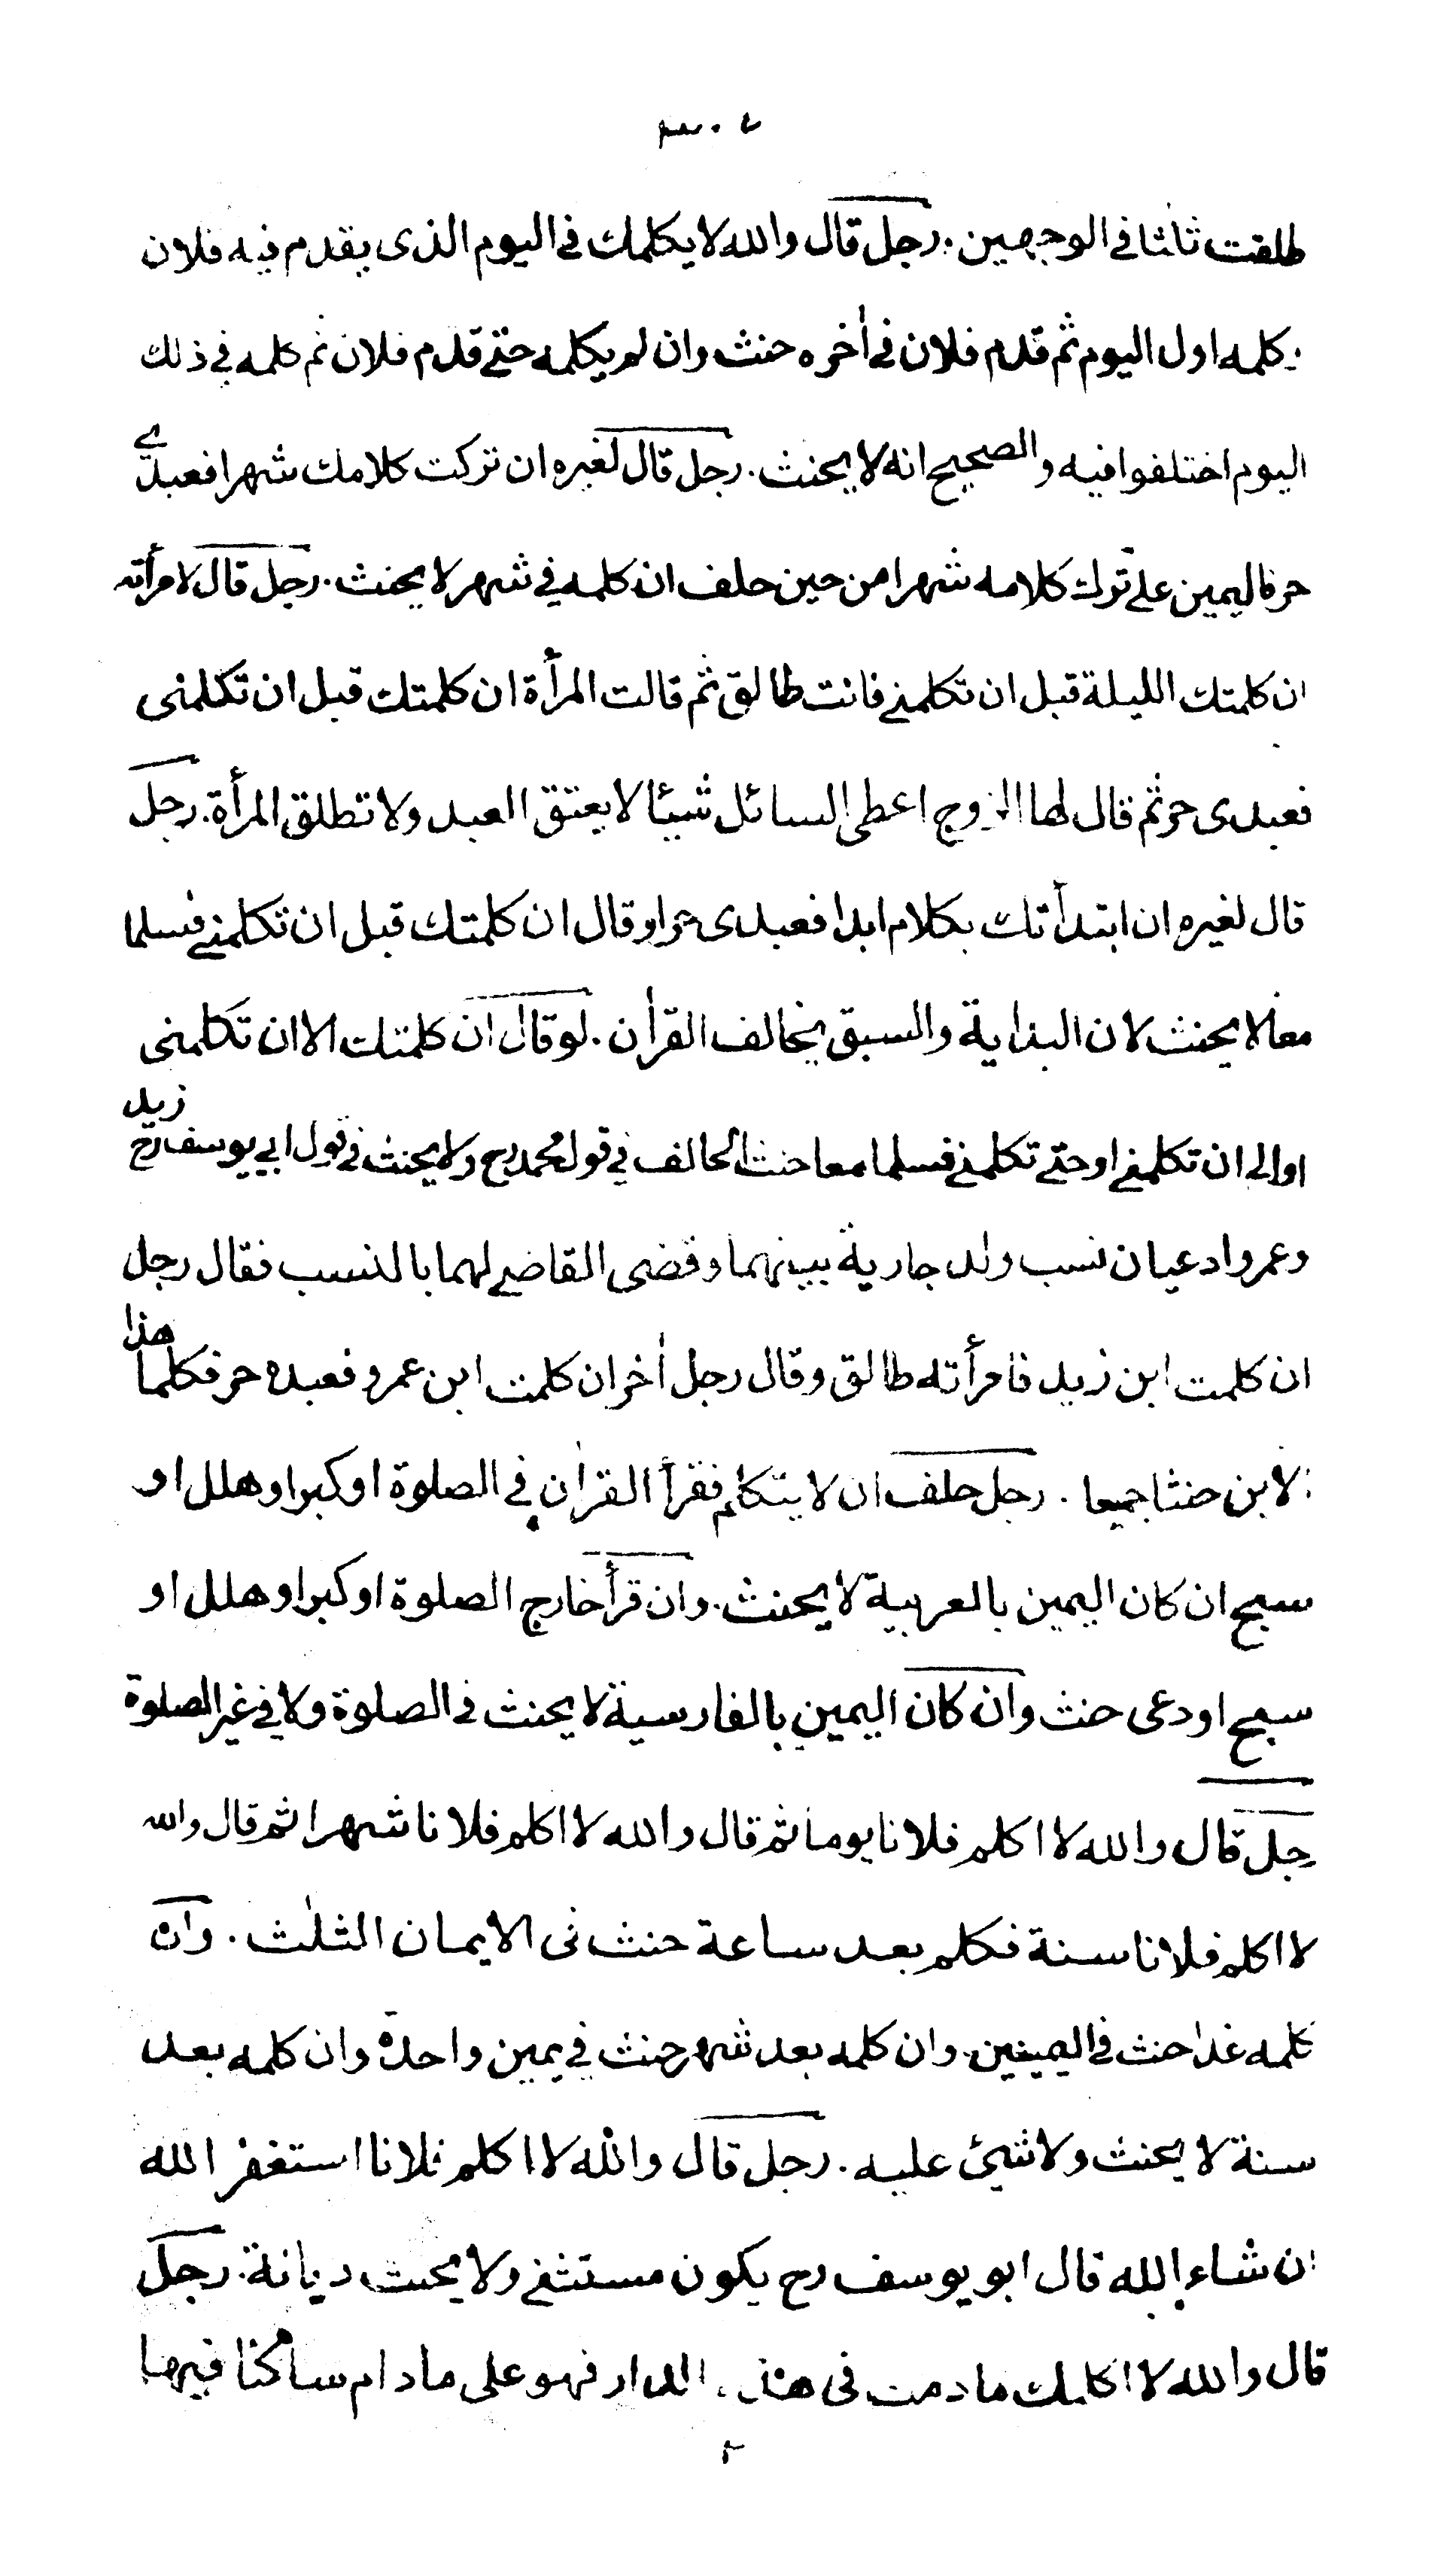 طلقت ثلثا في الوجهين . رجل قال والله لا يكلمك في اليوم الذى يقدم فيه فلان
كلمه اول اليوم ثم قدم فلان في أخره حنث وان لم يكلمه حتى قدم فلان ثم كلمه في ذلك
اليوم اختلفوا فيه والصحيح انه لا يحنث . رجل قال لغيره ان تركت كلامك شهرا فعبدي
حر فاليمين على ترك كلامه شهرا من حين حلف ان كلمه في شهر لا يحنث . رجل قال لامرأته
ان كلمتك الليلة قبل ان تكلمني فانت طالق ثم قالت المرأة ان كلمتك قبل ان تكلمنى
فعبدى حر ثم قال لها الزوج اعطى السائل شيئا لا يعتق العبد ولا تطلق المرأة . رجل
قال لغيره ان ابتدأتك بكلام ابدا فعبدى حر او قال ان كلمتك قبل ان تكلمني فسلما
معا لا يحنث لان البداية والسبق يخالف القرأن . لو قال ان كلمتك الا ان تكلمنى
او الى ان تكلمني او حتى تكلمني فسلما معا حنث الحالف في قول محمد رح ولا يحنث في قول ابي يوسف رح زيد
وعمرو ادعيان نسب ولد جارية بينهما وقضى القاضي لهما بالنسب فقال رجل
ان كلمت ابن زيد فامرأته طالق وقال رجل أخر ان كلمت ابن عمرو فعبده حر فكلما هذا
الابن حنثا جميعا . رجل حلف ان لا يتكلم فقرأ القرأن في الصلوة او كبر او هلل او
سبح ان كان اليمين بالعربية لا يحنث . وان قرأ خارج الصلوة او كبر او هلل او
سبح او دعى حنث وان كان اليمين بالفارسية لا يحنث في الصلوة ولا في غير الصلوة
رجل قال والله لا اكلم فلانا يوما ثم قال والله لا اكلم فلانا شهرا ثم قال والله
لا اكلم فلانا سنة فكلم بعد ساعة حنث فى الايمان الثلث . وان
كلمه غدا حنث في اليمينين . وان كلمه بعد شهر حنث في يمين واحدة وان كلمه بعد
سنة لا يحنث ولا شئ عليه . رجل قال والله لا اكلم فلانا استغفر الله
ان شاء الله قال ابو يوسف رح يكون مستثنى ولا يحنث ديانة . رجل
قال والله لا اكلمك ما دمت فى هذه الدار فهو على مادام ساكنا فيها